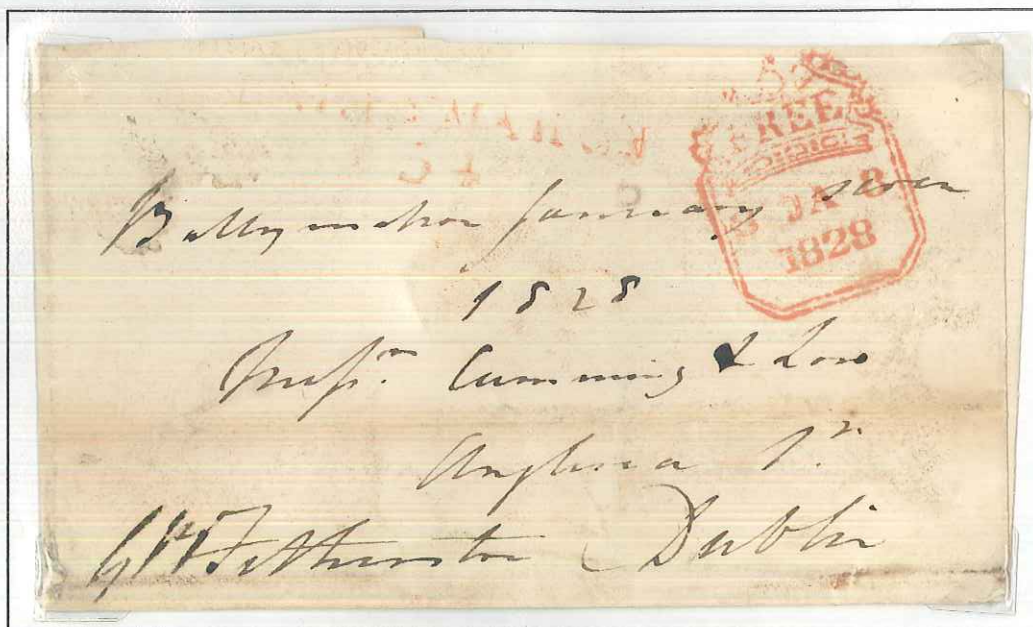 FREE
8 JA 8
1828
Ballymahon January seven
1828
Messrs. Cumming &
Anglesea St.
G R Fetherston Dublin